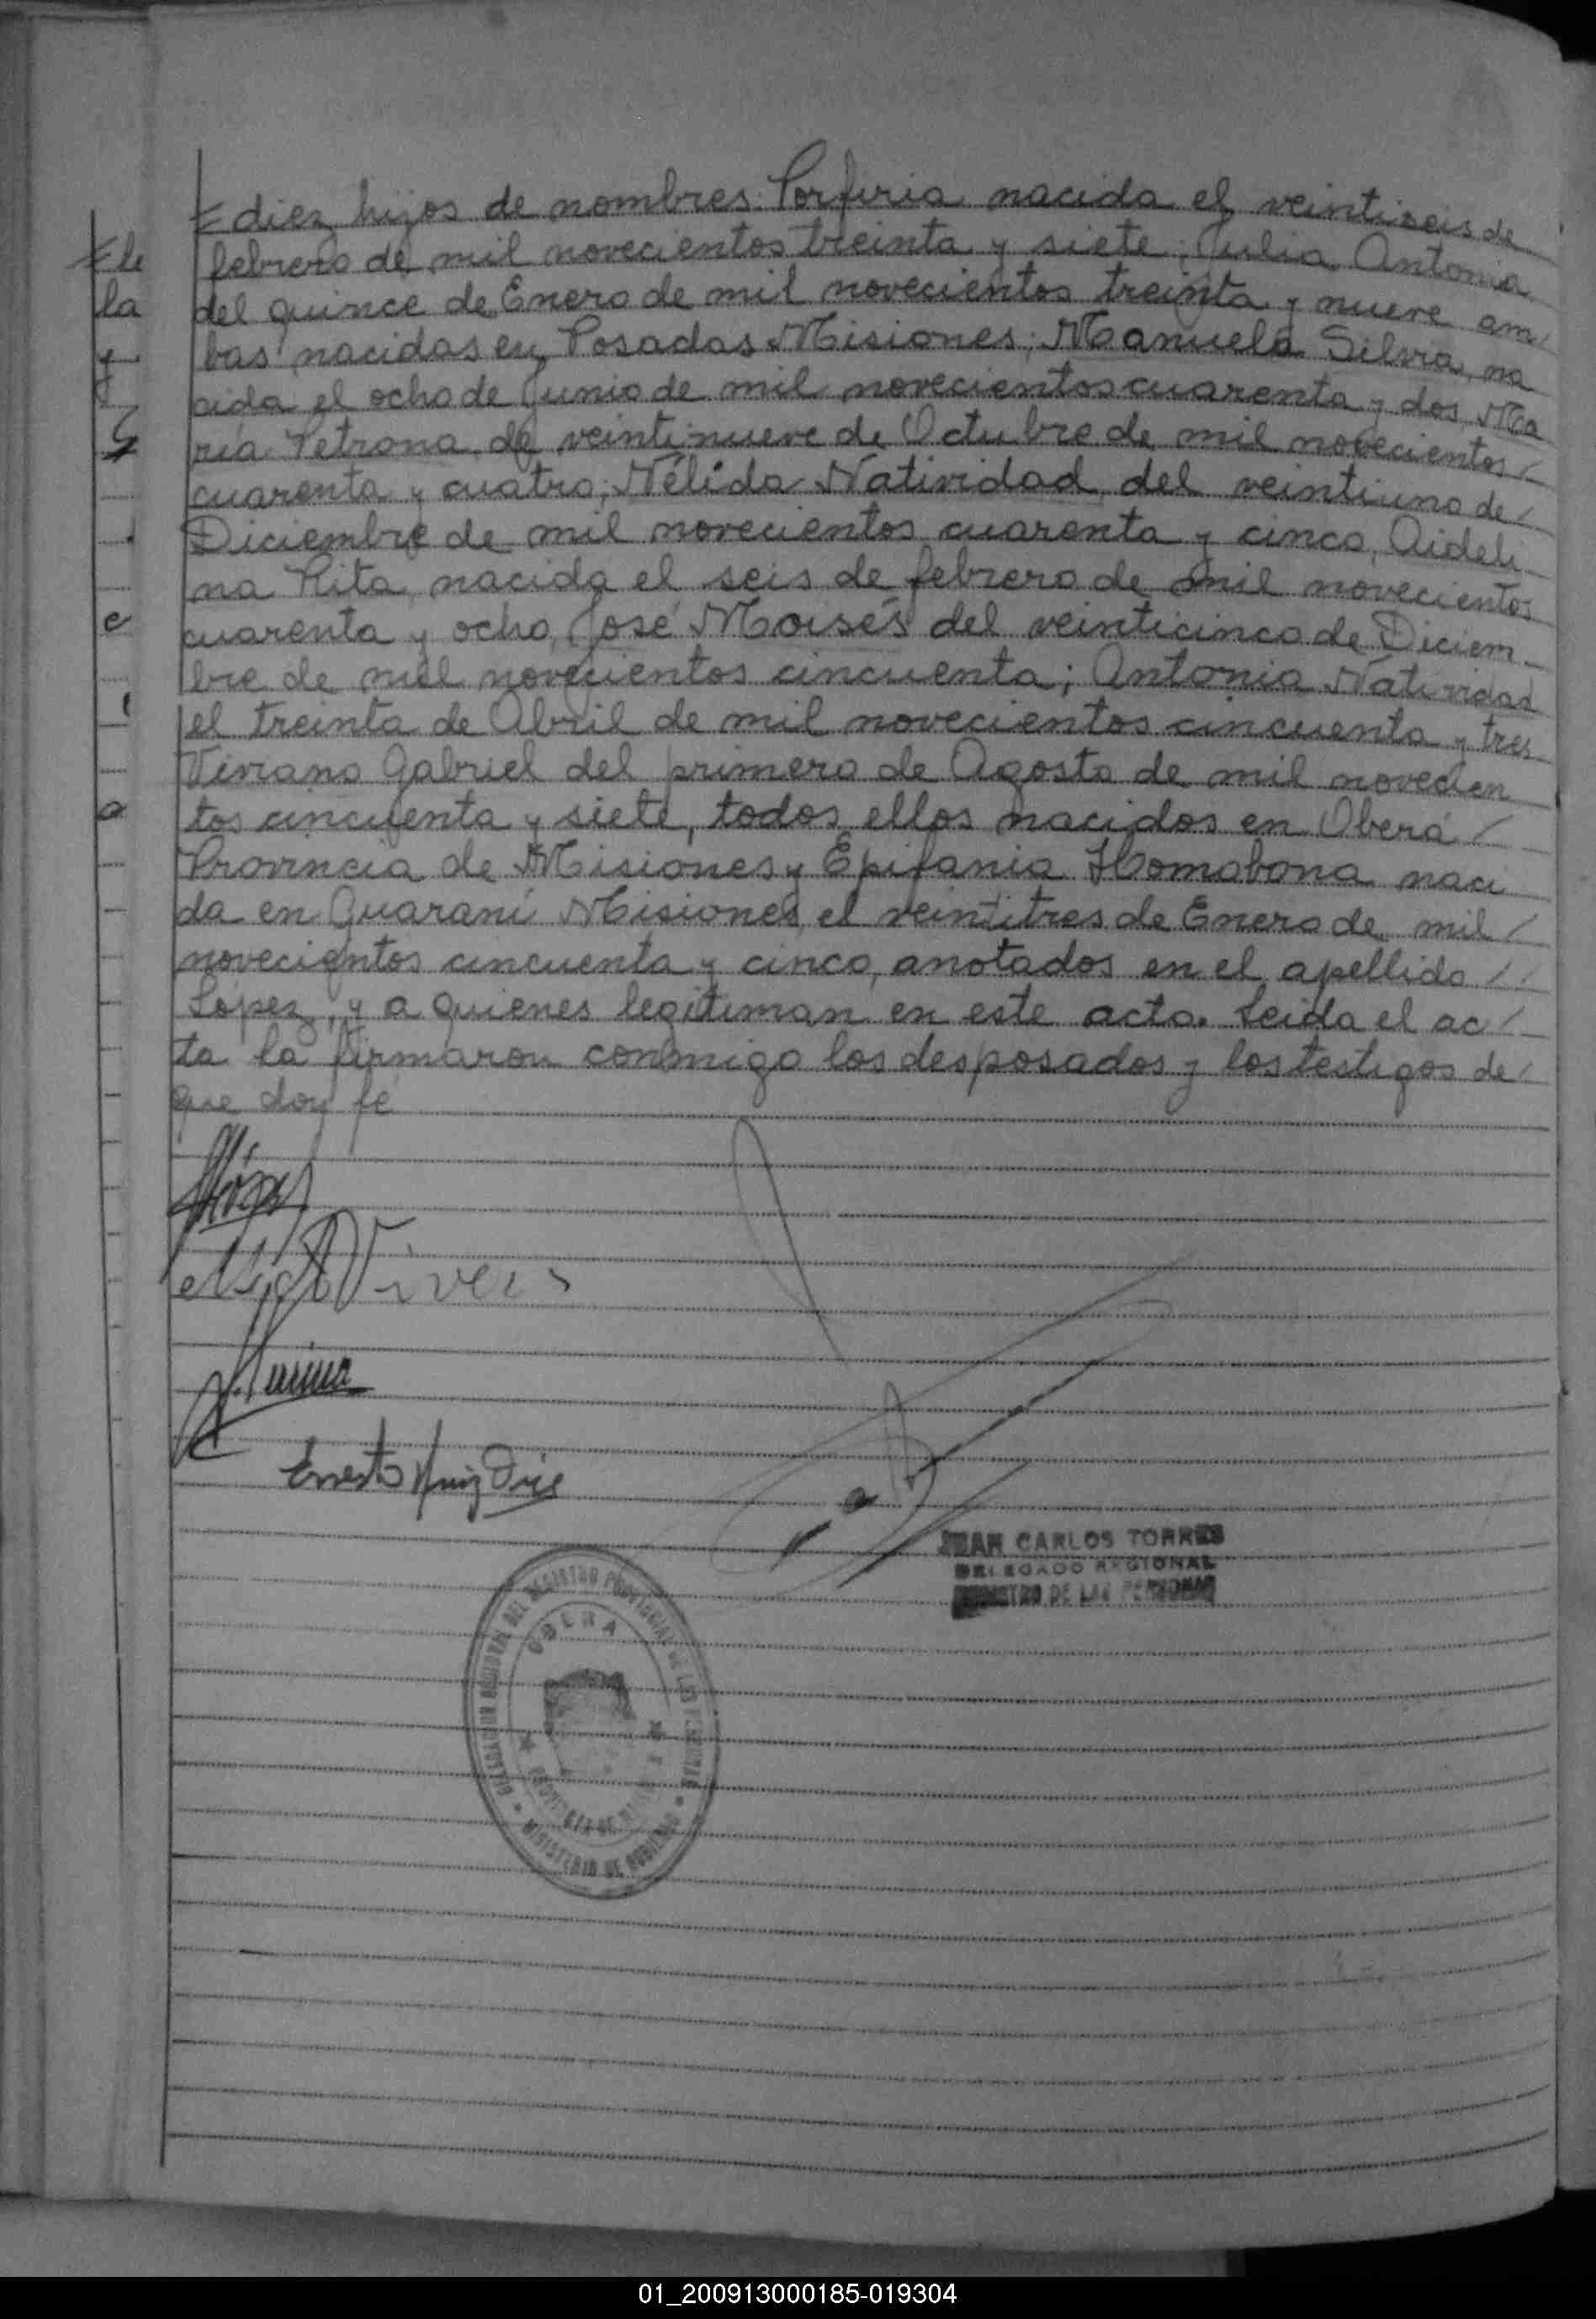 diez hijos de nombres: Porfiria nacida el veintiseis de
febrero de mil novecientos treinta y siete; Julia Antonia
del quince de Enero de mil novecientos treinta y nueve am/
bas nacidas en Posadas Misiones; Manuela Silvia, na
cida el ocho de Junio de mil novecientos cuarenta y dos, Ma
ría Petrona, de veintinueve de Octubre de mil novecientos /
cuarenta y cuatro; Nélida Natividad, del veintiuno de /
Diciembre de mil novecientos cuarenta y cinco, Aideli
na Rita, nacida el seis de febrero de mil novecientos
cuarenta y ocho, José Moisés del veinticinco de Diciem
bre de mil novecientos cincuenta; Antonia Natividad
el treinta de Abril de mil novecientos cincuenta y tres
Viviano Gabriel del primero de Agosto de mil novecien
tos cincuenta y siete, todos ellos nacidos en Oberá /
Provincia de Misiones y Epifania Homobona naci
da en Guaraní Misiones el veintitres de Enero de mil /
novecientos cincuenta y cinco, anotados en el apellido //
López, y a quienes legitiman en este acto. Leida el ac /
ta la firmaron conmigo los desposados y los testigos de /
que doy fé
López
Ernesto Ruiz Diaz
JUAN CARLOS TORRES
DELEGADO REGIONAL
REGISTRO DE LAS PERSONAS
DELEGACION REGIONAL DEL REGISTRO PROVINCIAL DE LAS PERSONAS
OBERA
PROVINCIA DE
MINISTERIO DE GOBIERNO
01_200913000185-019304